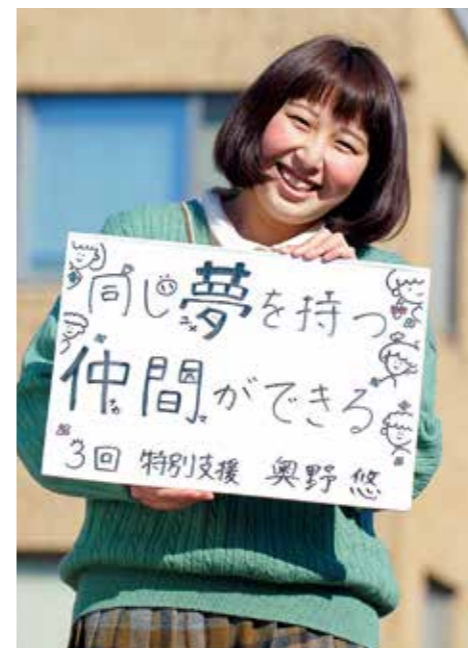 同じ夢を持つ
ゆめ
仲間ができる
なかま
3回 特別支援 奥野 悠